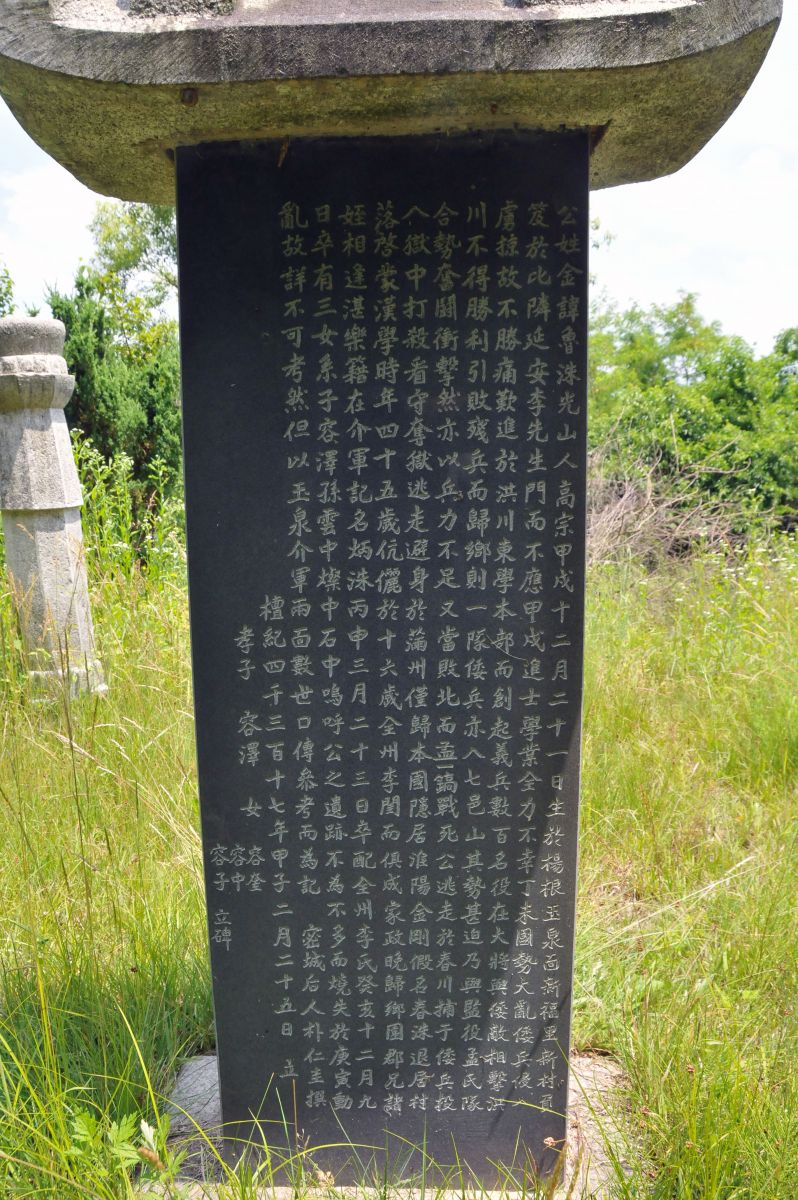 公姓金諱魯洙光山人高宗甲戌十二月二十一日生於楊根玉泉面新福里新村負
笈於比隣延安李先生門而不應甲戌進士學業全力不幸丁未國勢大亂倭兵侵入
虜掠故不勝痛歎進於洪川東學本部而創起義兵數百名役在大將與倭敵相擊洪
川不得勝利引敗殘兵而歸鄉則一隊倭兵亦入七邑山其勢甚迫乃與監役孟氏隊
合勢奮鬪衝擊然亦以兵力不足又當敗北而孟鎬戰死公逃走於春川捕于倭兵投
入獄中打殺看守奪獄逃走避身於滿州僅歸本國隱居淮陽金剛假名春洙退居村
落啓蒙漢學時年四十五歲伉儷於十六歲全州李閏而俱成家政晩歸鄉園郡兄諸
姪相逢湛樂籍在介軍記名炳洙丙申三月二十三日卒配全州李氏癸亥十二月九
日卒有三女系子容澤孫雲中燦中石中嗚呼公之遺跡不為不多而燒失於庚寅動
亂故詳不可考然但以玉泉介軍兩面數世口傳參考而為記 密城后人朴仁圭撰
檀紀四千三百十七年甲子二月二十五日 立
孝子 容澤 女 容登
容中
容子 立碑